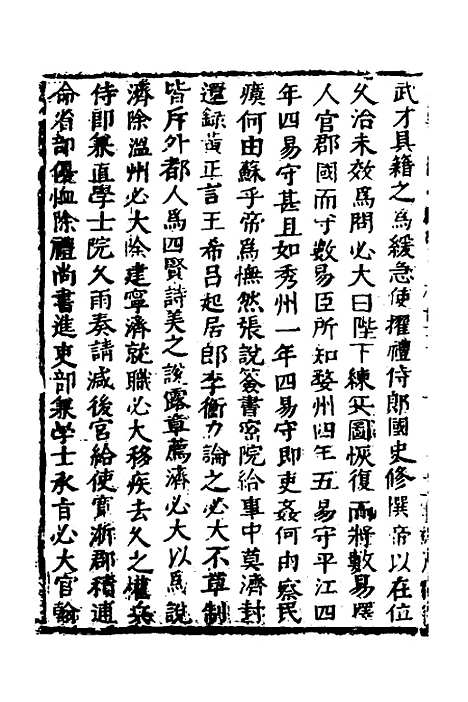 武才具籍之為緩急使擢禮侍郎國史修撰帝以在位
久治未效為問必大曰陛下練兵圖恢復而將數易擇
人官郡國而守數易臣所知婺州四年五易守平江四
年四易守甚且如秀州一年四易守即吏姦何由察民
瘼何由蘇乎帝為憮然張說簽書密院給事中莫濟封
還錄黃正言王希呂起居郎李衡力論之必大不草制
皆斥外都人為四賢詩美之說露章薦濟必大以為說
濟除溫州必大除建寧濟就職必大移疾去久之權兵
侍郎兼直學士院久雨奏請減後宮給使寬浙郡積逋
命省部優恤除禮尚書進吏部兼學士承旨必大官翰